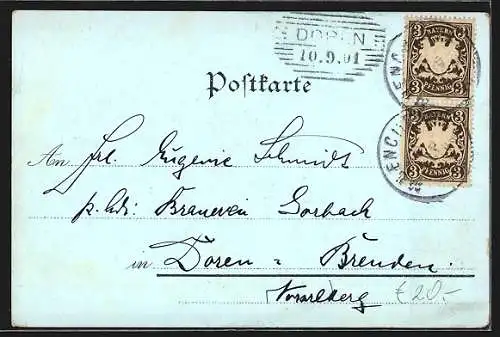 DOREN
10.9.01
BAYERN
3 3
PFENNIG
BAYERN
3 3
PFENNIG
Postkarte
An Frl. Eugenie Schmidt
p. Adr: Brauerei Gorbach
in Doren - Brenden.
Vorarlberg
€ 20.-